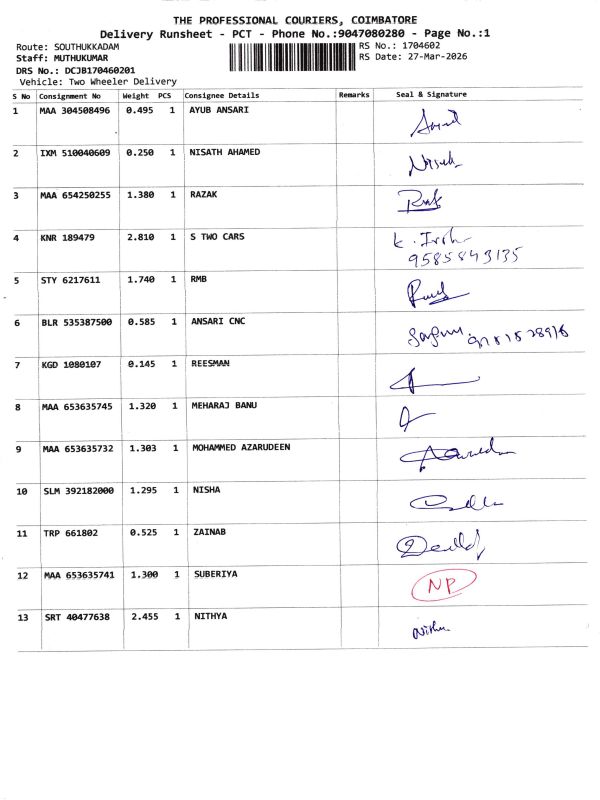 THE PROFESSIONAL COURIERS, COIMBATORE
Delivery Runsheet - PCT - Phone No.:9047080280 - Page No.:1
Route: SOUTHUKKADAM RS No.: 1704602
Staff: MUTHUKUMAR RS Date: 27-Mar-2026
DRS No.: DCJB170460201
Vehicle: Two Wheeler Delivery
S No Consignment No Weight PCS Consignee Details Remarks Seal & Signature
1 MAA 304508496 0.495 1 AYUB ANSARI
2 IXM 510040609 0.250 1 NISATH AHAMED
3 MAA 654250255 1.380 1 RAZAK
4 KNR 189479 2.810 1 S TWO CARS K. Irsh
9585843135
5 STY 6217611 1.740 1 RMB
6 BLR 535387500 0.585 1 ANSARI CNC
7 KGD 1080107 0.145 1 REESMAN
8 MAA 653635745 1.320 1 MEHARAJ BANU
9 MAA 653635732 1.303 1 MOHAMMED AZARUDEEN
10 SLM 392182000 1.295 1 NISHA
11 TRP 661802 0.525 1 ZAINAB
12 MAA 653635741 1.300 1 SUBERIYA NP
13 SRT 40477638 2.455 1 NITHYA